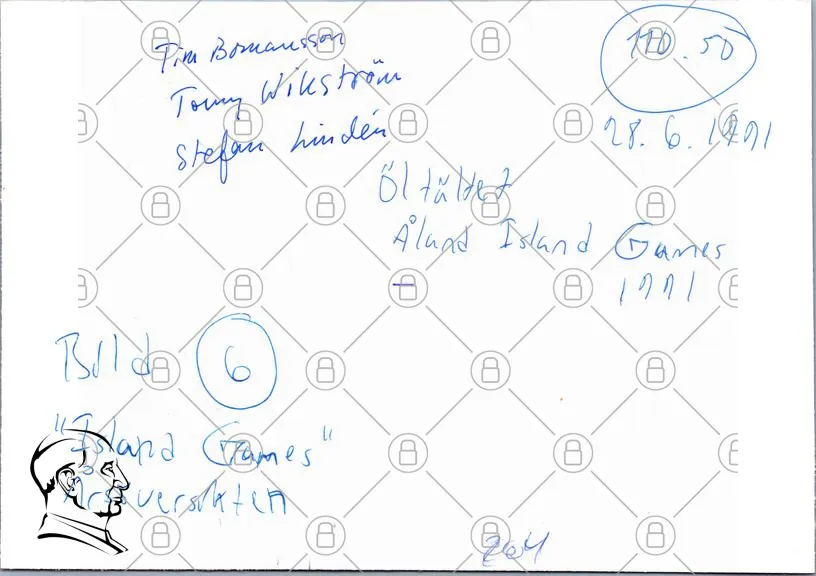 Tim Bomansson
Tommy Wikström
Stefan Lindén
110.50
28.6.1991
Öltältet
Åland Island Games
1991
Bild 6
"Island Games"
Årsöversikten
204